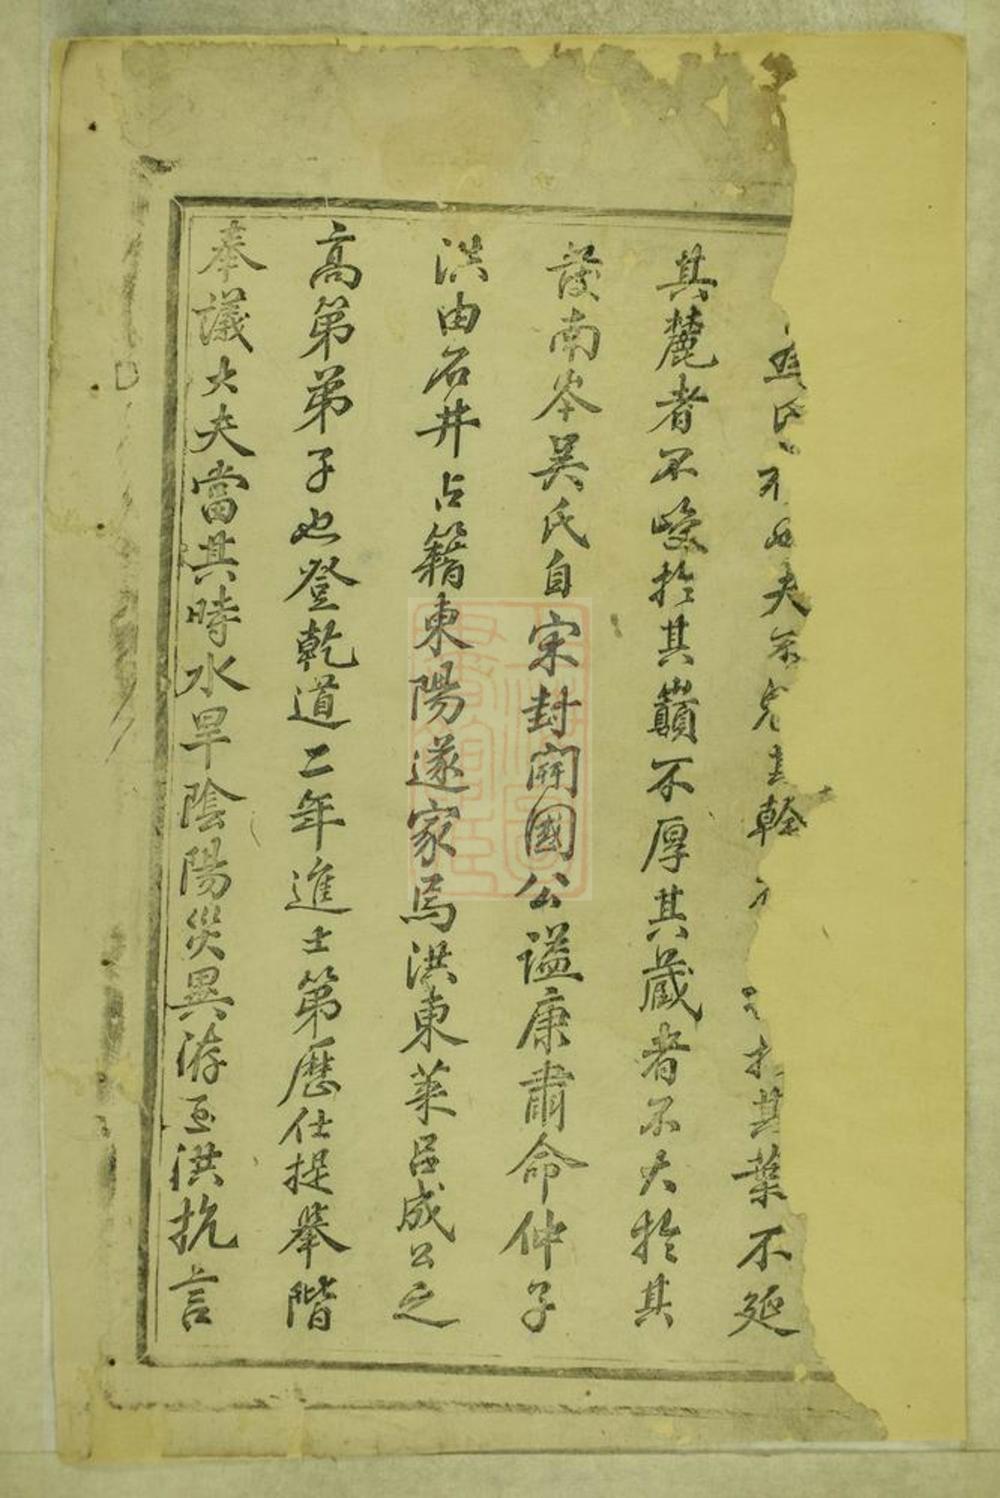 夫
幹
其葉不延
其麓者不峻於其巔不厚其藏者不大於其
發南岑吳氏自宋封開國公謚康肅命仲子
洪由石井占籍東陽遂家焉洪東萊呂成公之
高第弟子也登乾道二年進士第歷仕提舉階
奉議大夫當其時水旱陰陽災異洊臻洪抗言